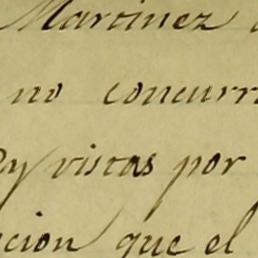 Martinez
no concurr
y vistas por
cion que el